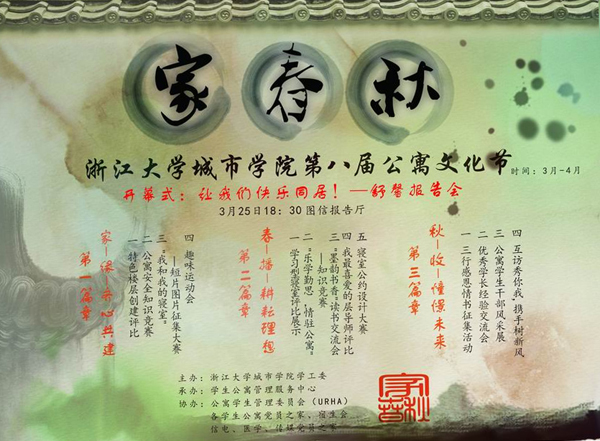 家春秋
浙江大学城市学院第八届公寓文化节 时间：3月-4月
开幕式：让我们快乐同居！—舒馨报告会
3月25日18：30图信报告厅
第一篇章
家—缘—齐心共建
一 特色楼层创建评比
二 公寓安全知识竞赛
三 “我和我的寝室。”
—短片图片征集大赛
四 趣味运动会
第二篇章
春—播—耕耘理想
一 学习型寝室评比展示
二 “乐学勤思，情驻公寓”
—知识竞赛
三 “墨韵书香”读书交流会
四 我最喜爱的层导师评比
五 寝室公约设计大赛
第三篇章
秋—收—憧憬未来
一 三行感恩情书征集活动
二 优秀学长经验交流会
三 公寓学生干部风采展
四 互访秀你我，携手树新风
主办：浙江大学城市学院学工委
承办：学生公寓管理服务中心
协办：公寓学生管理委员会（URHA）
各学生公寓党员之家、宿生会
信电、医学、传媒党员之家
家春秋